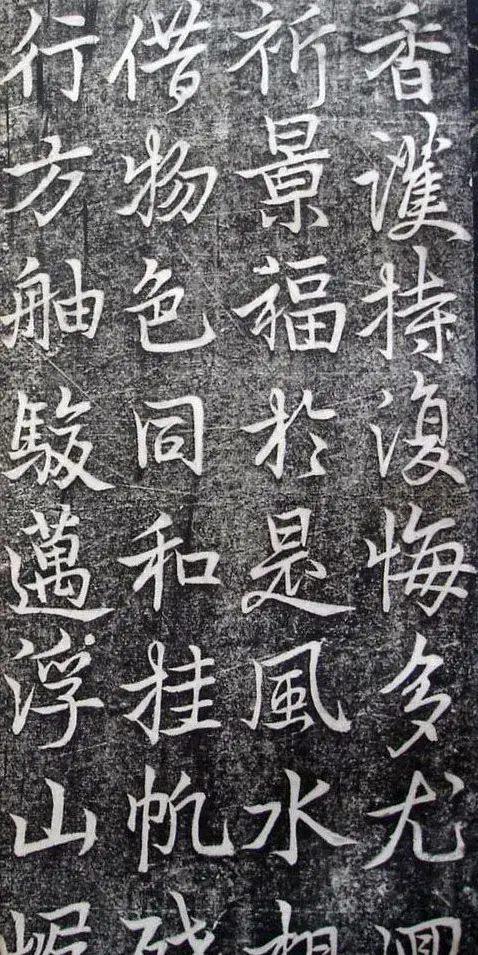 香護持復悔多尤
祈景福於是風水相
借物色同和挂帆
行方舳駿邁浮山